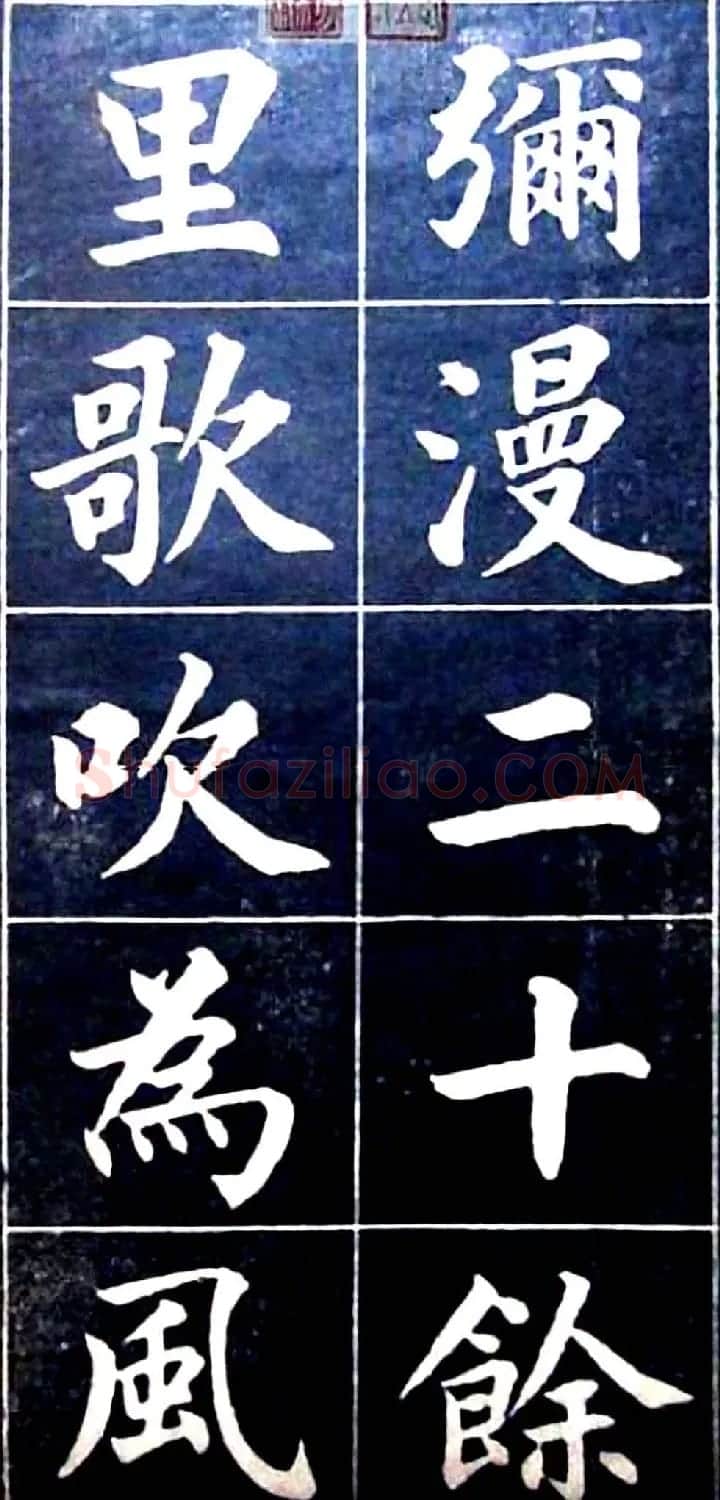 彌漫二十餘
里歌吹為風
Shufaziliao.COM